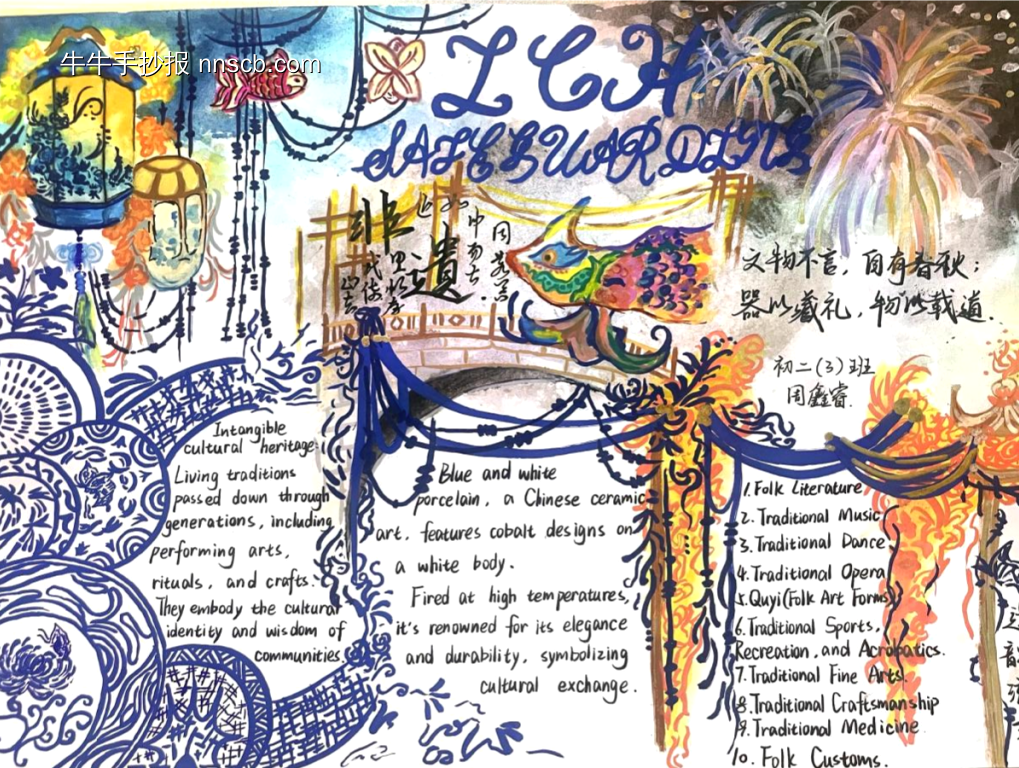 牛牛手抄报 nnscb.com
ICH
SAFEGUARDING
非
遗
文物不言，自有春秋；
器以藏礼，物以载道.
初二(3)班
周鑫睿
Intangible
cultural heritage:
Living traditions
passed down through
generations, including
performing arts,
rituals, and crafts.
They embody the cultural
identity and wisdom of
communities.
Blue and white
porcelain, a Chinese ceramic
art, features cobalt designs on
a white body.
Fired at high temperatures,
it's renowned for its elegance
and durability, symbolizing
cultural exchange.
1. Folk Literature
2. Traditional Music
3. Traditional Dance
4. Traditional Opera
5. Quyi (Folk Art Forms)
6. Traditional Sports,
Recreation, and Acrobatics.
7. Traditional Fine Arts.
8. Traditional Craftsmanship
9. Traditional Medicine
10. Folk Customs.